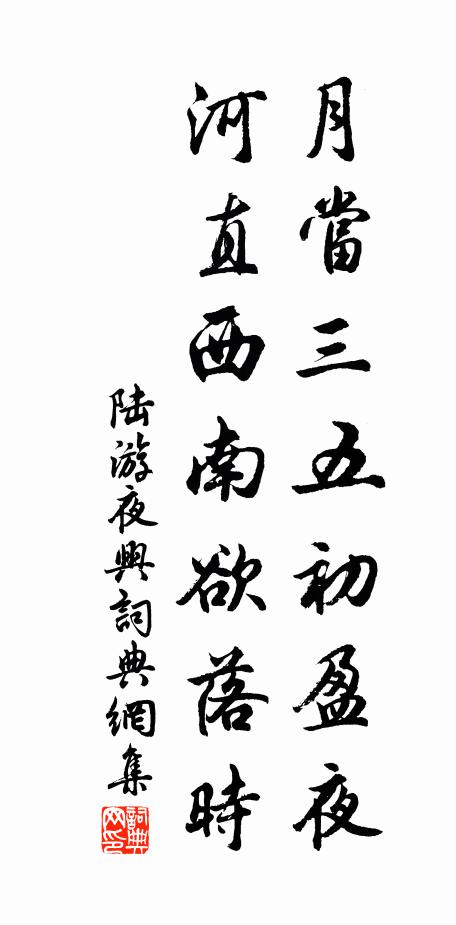 月當三五初盈夜
河直西南欲落時
陆游夜興詞典網集
詞典网印